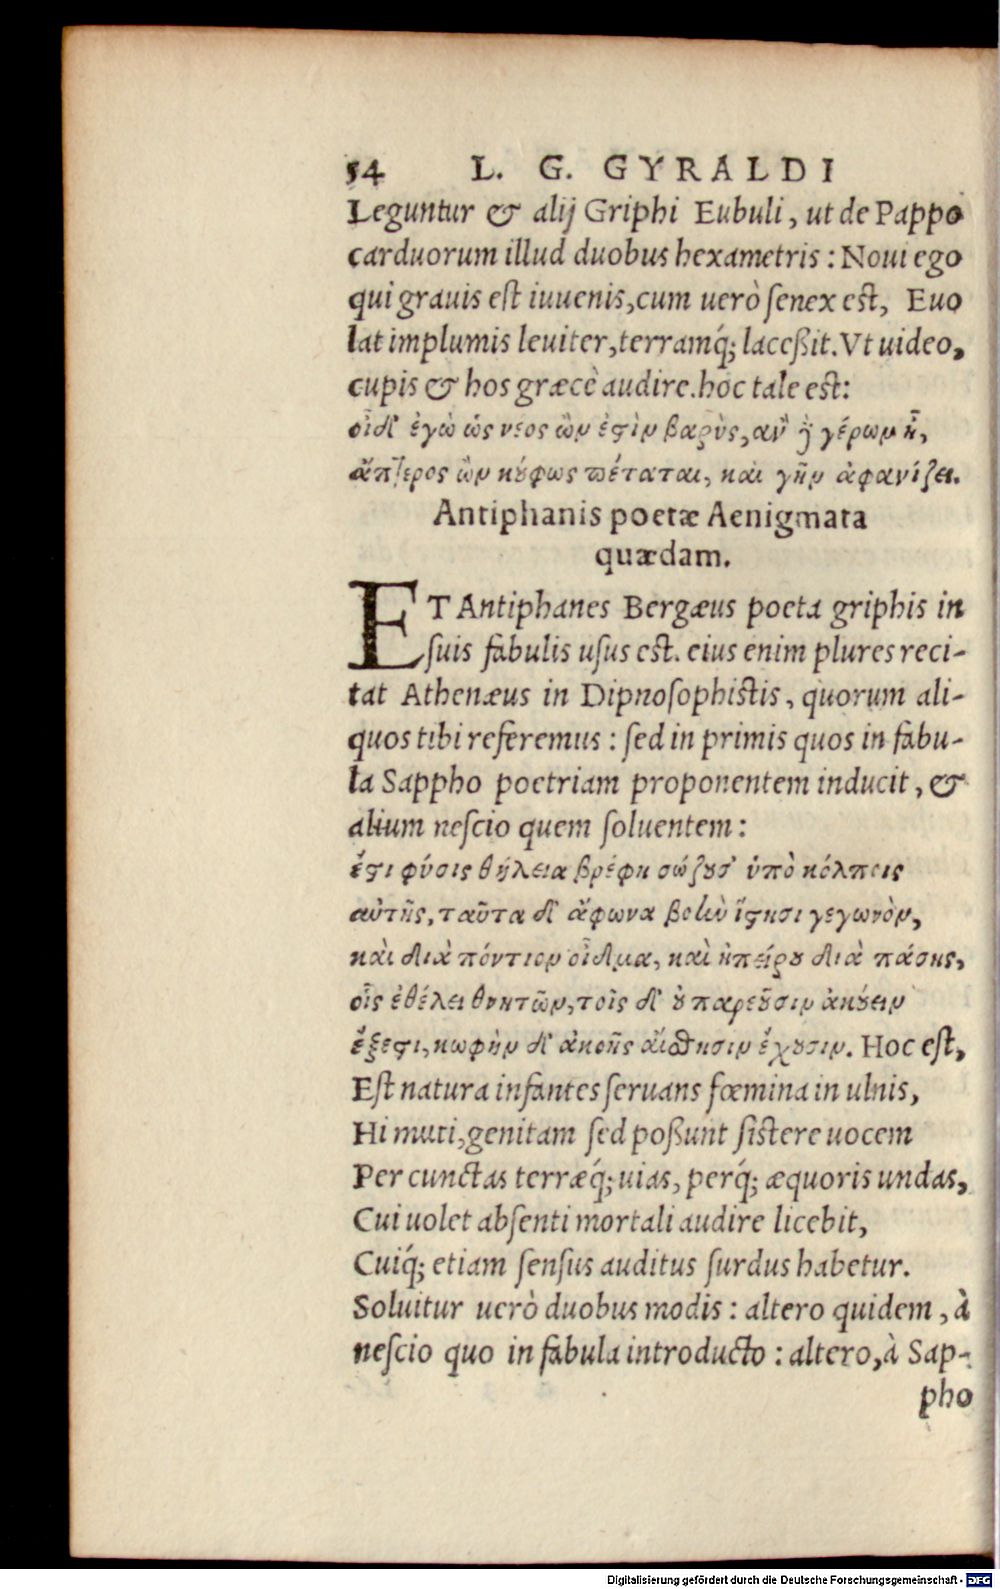 54 L. G. GYRALDI
Leguntur & alij Griphi Eubuli, ut de Pappo
carduorum illud duobus hexametris: Noui ego
qui grauis est iuuenis, cum uerò senex est, Euo
lat implumis leuiter, terramq́; laceßit. Vt uideo,
cupis & hos græcè audire. hoc tale est:
οἶδ' ἐγὼ ὡς νέος ὢν ἐςὶν βαρὺς, ἂν γέρων ᾖ,
ἄπτερος ὢν κούφως πέταται, καὶ γῆν ἀφανίζει.
Antiphanis poetæ Aenigmata
quædam.
ET Antiphanes Bergæus poeta griphis in
suis fabulis usus est. eius enim plures reci-
tat Athenæus in Dipnosophistis, quorum ali-
quos tibi referemus: sed in primis quos in fabu-
la Sappho poetriam proponentem inducit, &
alium nescio quem soluentem:
ἔςι φύσις θήλεια βρέφη σώζουσ' ὑπὸ κόλποις
αὑτῆς, ταῦτα δ' ἄφωνα βοὴν ἵςησι γεγωνὸν,
καὶ διὰ πόντιον οἶδμα, καὶ ἠπείρου διὰ πάσης,
οἷς ἐθέλει θνητῶν, τοῖς δ' οὐ παρεῦσιν ἀκούειν
ἔξεςι, κωφὴν δ' ἀκοῆς αἴσθησιν ἔχουσιν. Hoc est,
Est natura infantes seruans fœmina in ulnis,
Hi muti, genitam sed poßunt sistere uocem
Per cunctas terræq́; uias, perq́; æquoris undas,
Cui uolet absenti mortali audire licebit,
Cuiq́; etiam sensus auditus surdus habetur.
Soluitur uerò duobus modis: altero quidem, à
nescio quo in fabula introducto: altero, à Sap-
pho
Digitalisierung gefördert durch die Deutsche Forschungsgemeinschaft - DFG